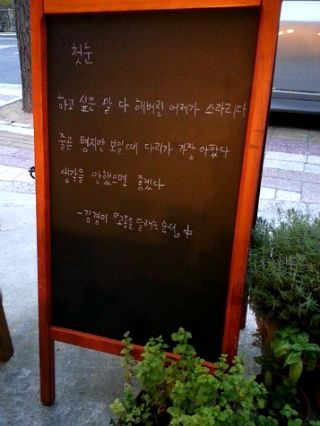 첫눈
하고 싶은 말 다 해버린 어제가 쓰라리다
줄곧 평지만 보일 때 다리가 가장 아팠다
생각을 안했으면 좋겠다
-김경미 '고통을 달래는 순서' 中